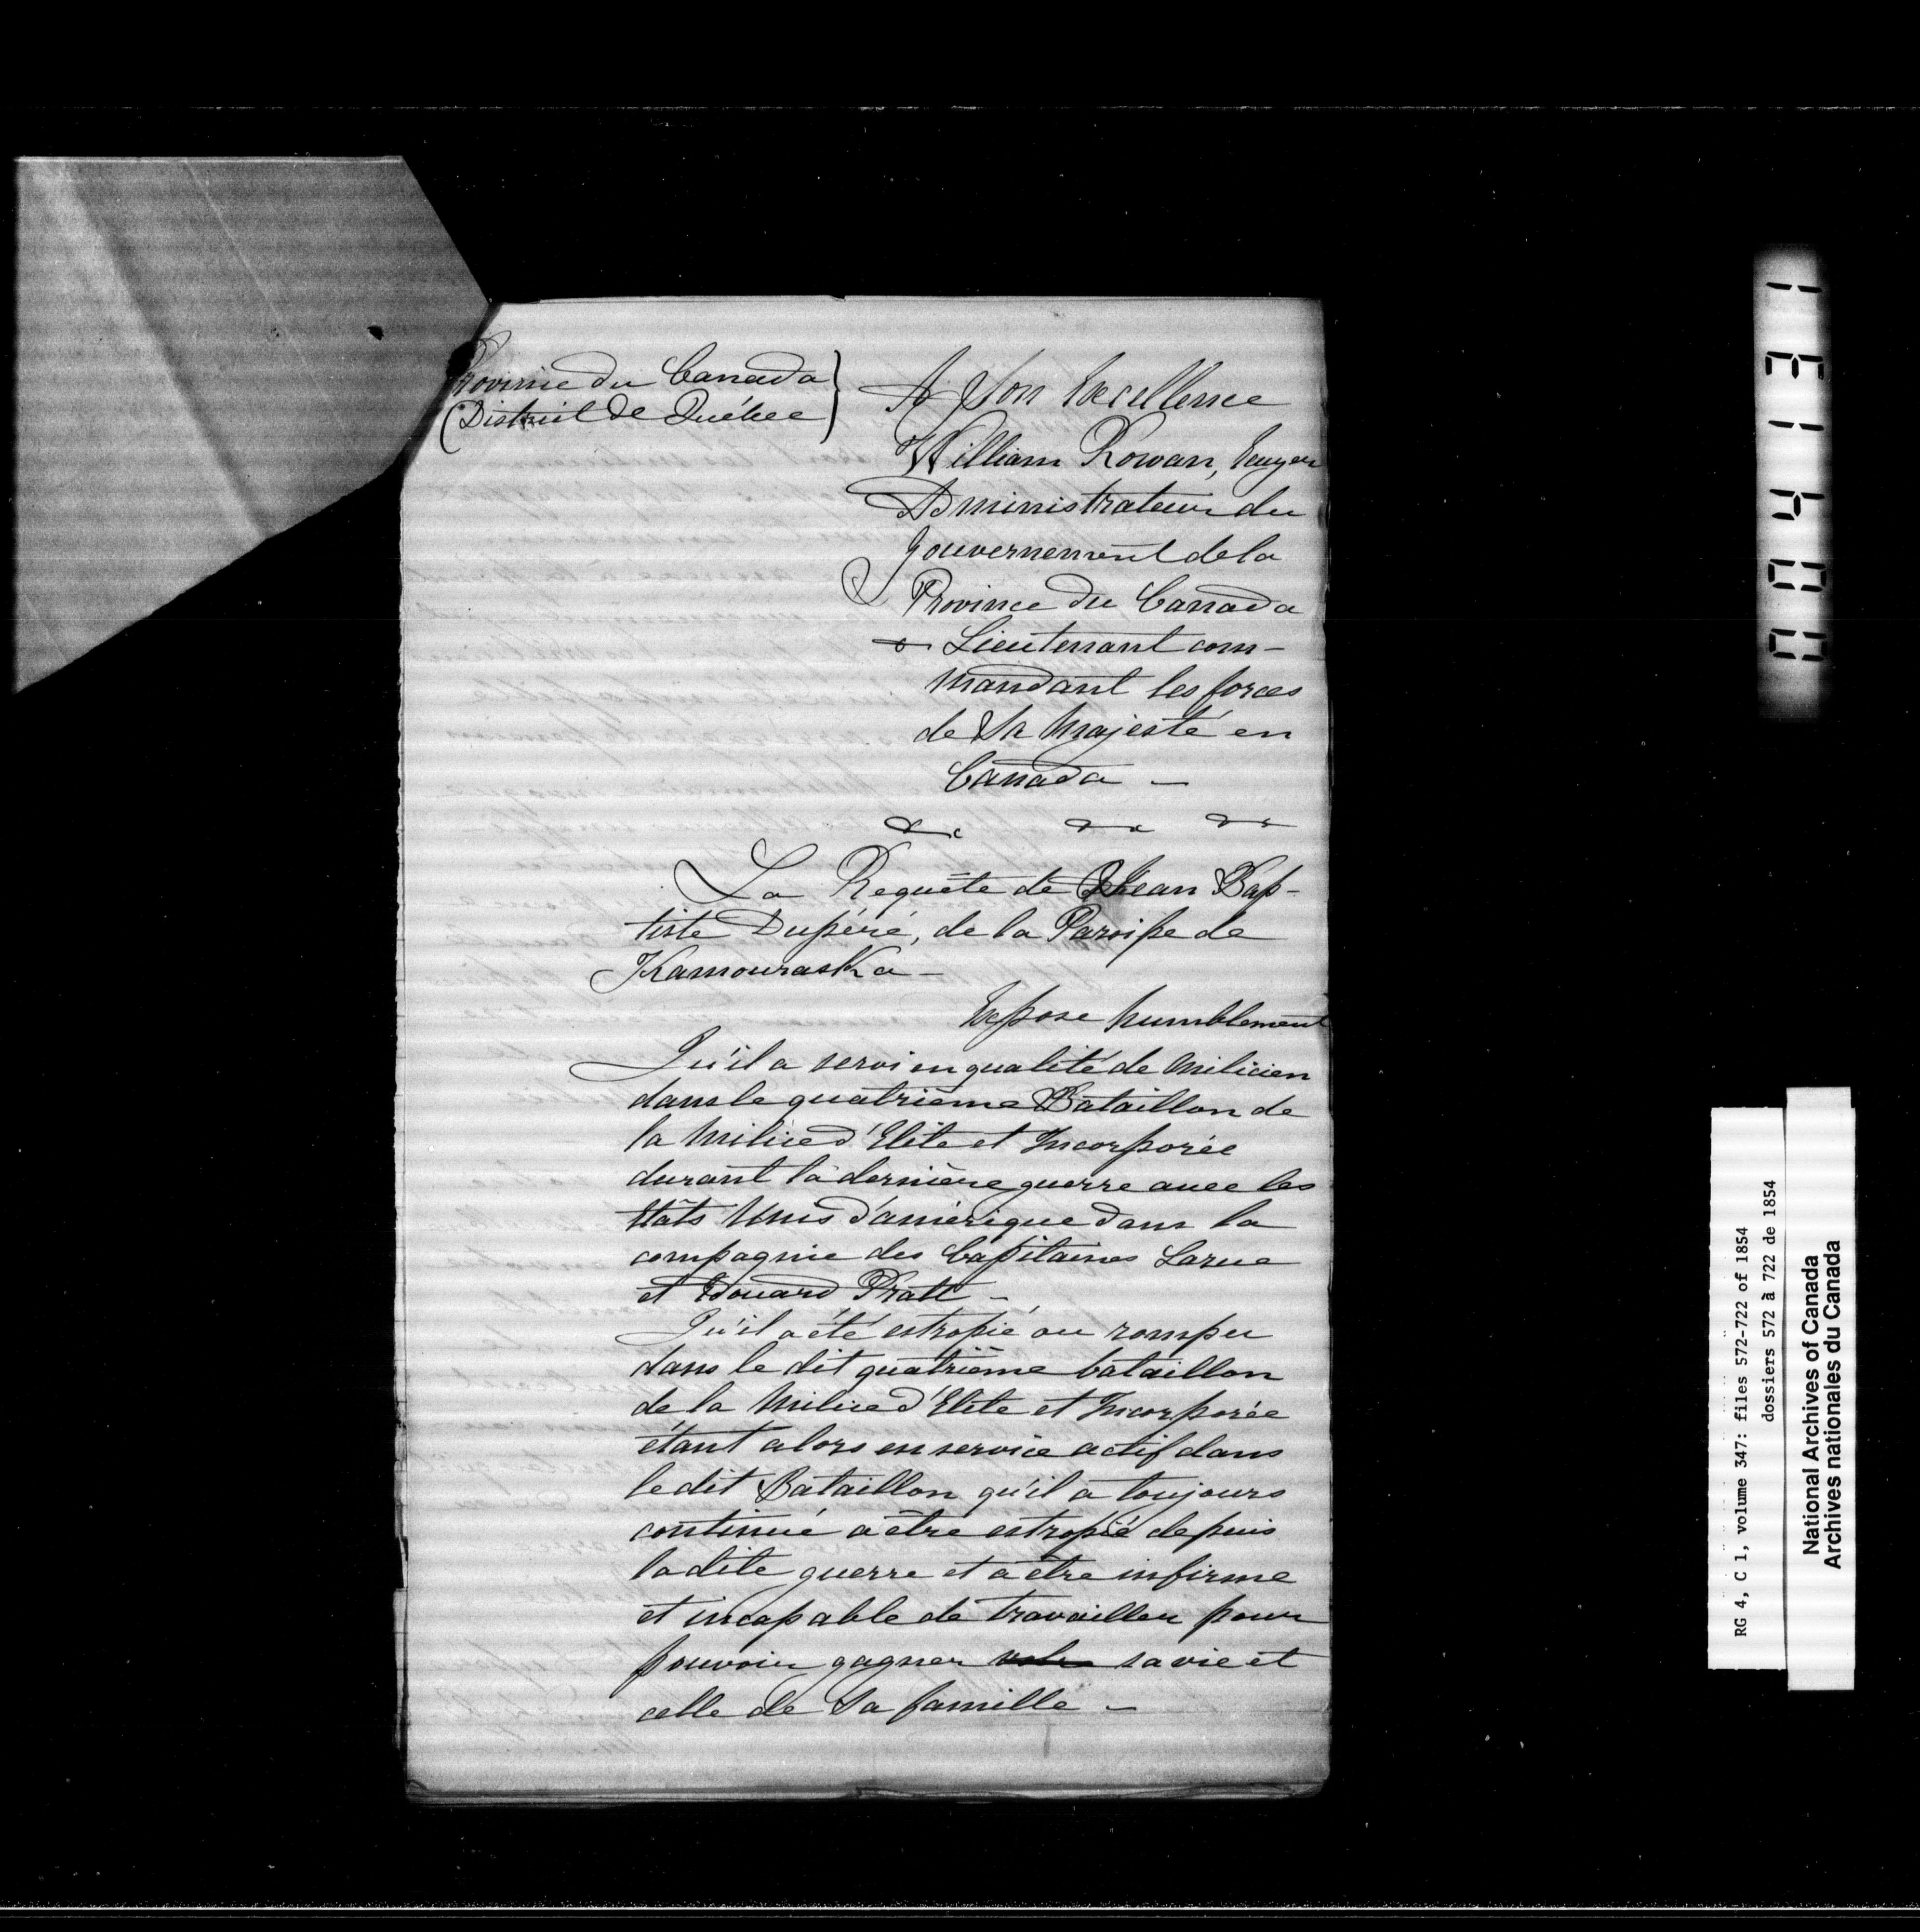 Province du Canada
District de Québec
A Son Excellence
William Rowan, Ecuyer
Administrateur du
Gouvernement de la
Province du Canada
& Lieutenant com-
mandant les forces
de Sa Majesté en
Canada -
&c &c &c
La Requête de Jean Bap-
tiste Dupéré, de la Paroisse de
Kamouraska -
Expose humblement
Qu'il a servi en qualité de Milicien
dans le quatrième Bataillon de
la Milice d'Elite et Incorporée
durant la dernière guerre avec les
Etats Unis d'amérique dans la
compagnie des Capitaines Larue
et Edouard Pratt -
Qu'il a été estropié ou rompu
dans le dit quatrième bataillon
de la Milice d'Elite et Incorporée
étant alors en service actif dans
le dit Bataillon qu'il a toujours
continué a être estropié depuis
la dite guerre et a être infirme
et incapable de travailler pour
pouvoir gagner sa vie et
celle de sa famille -
004131
RG 4, C 1, volume 347: files 572-722 of 1854
dossiers 572 à 722 de 1854
National Archives of Canada
Archives nationales du Canada